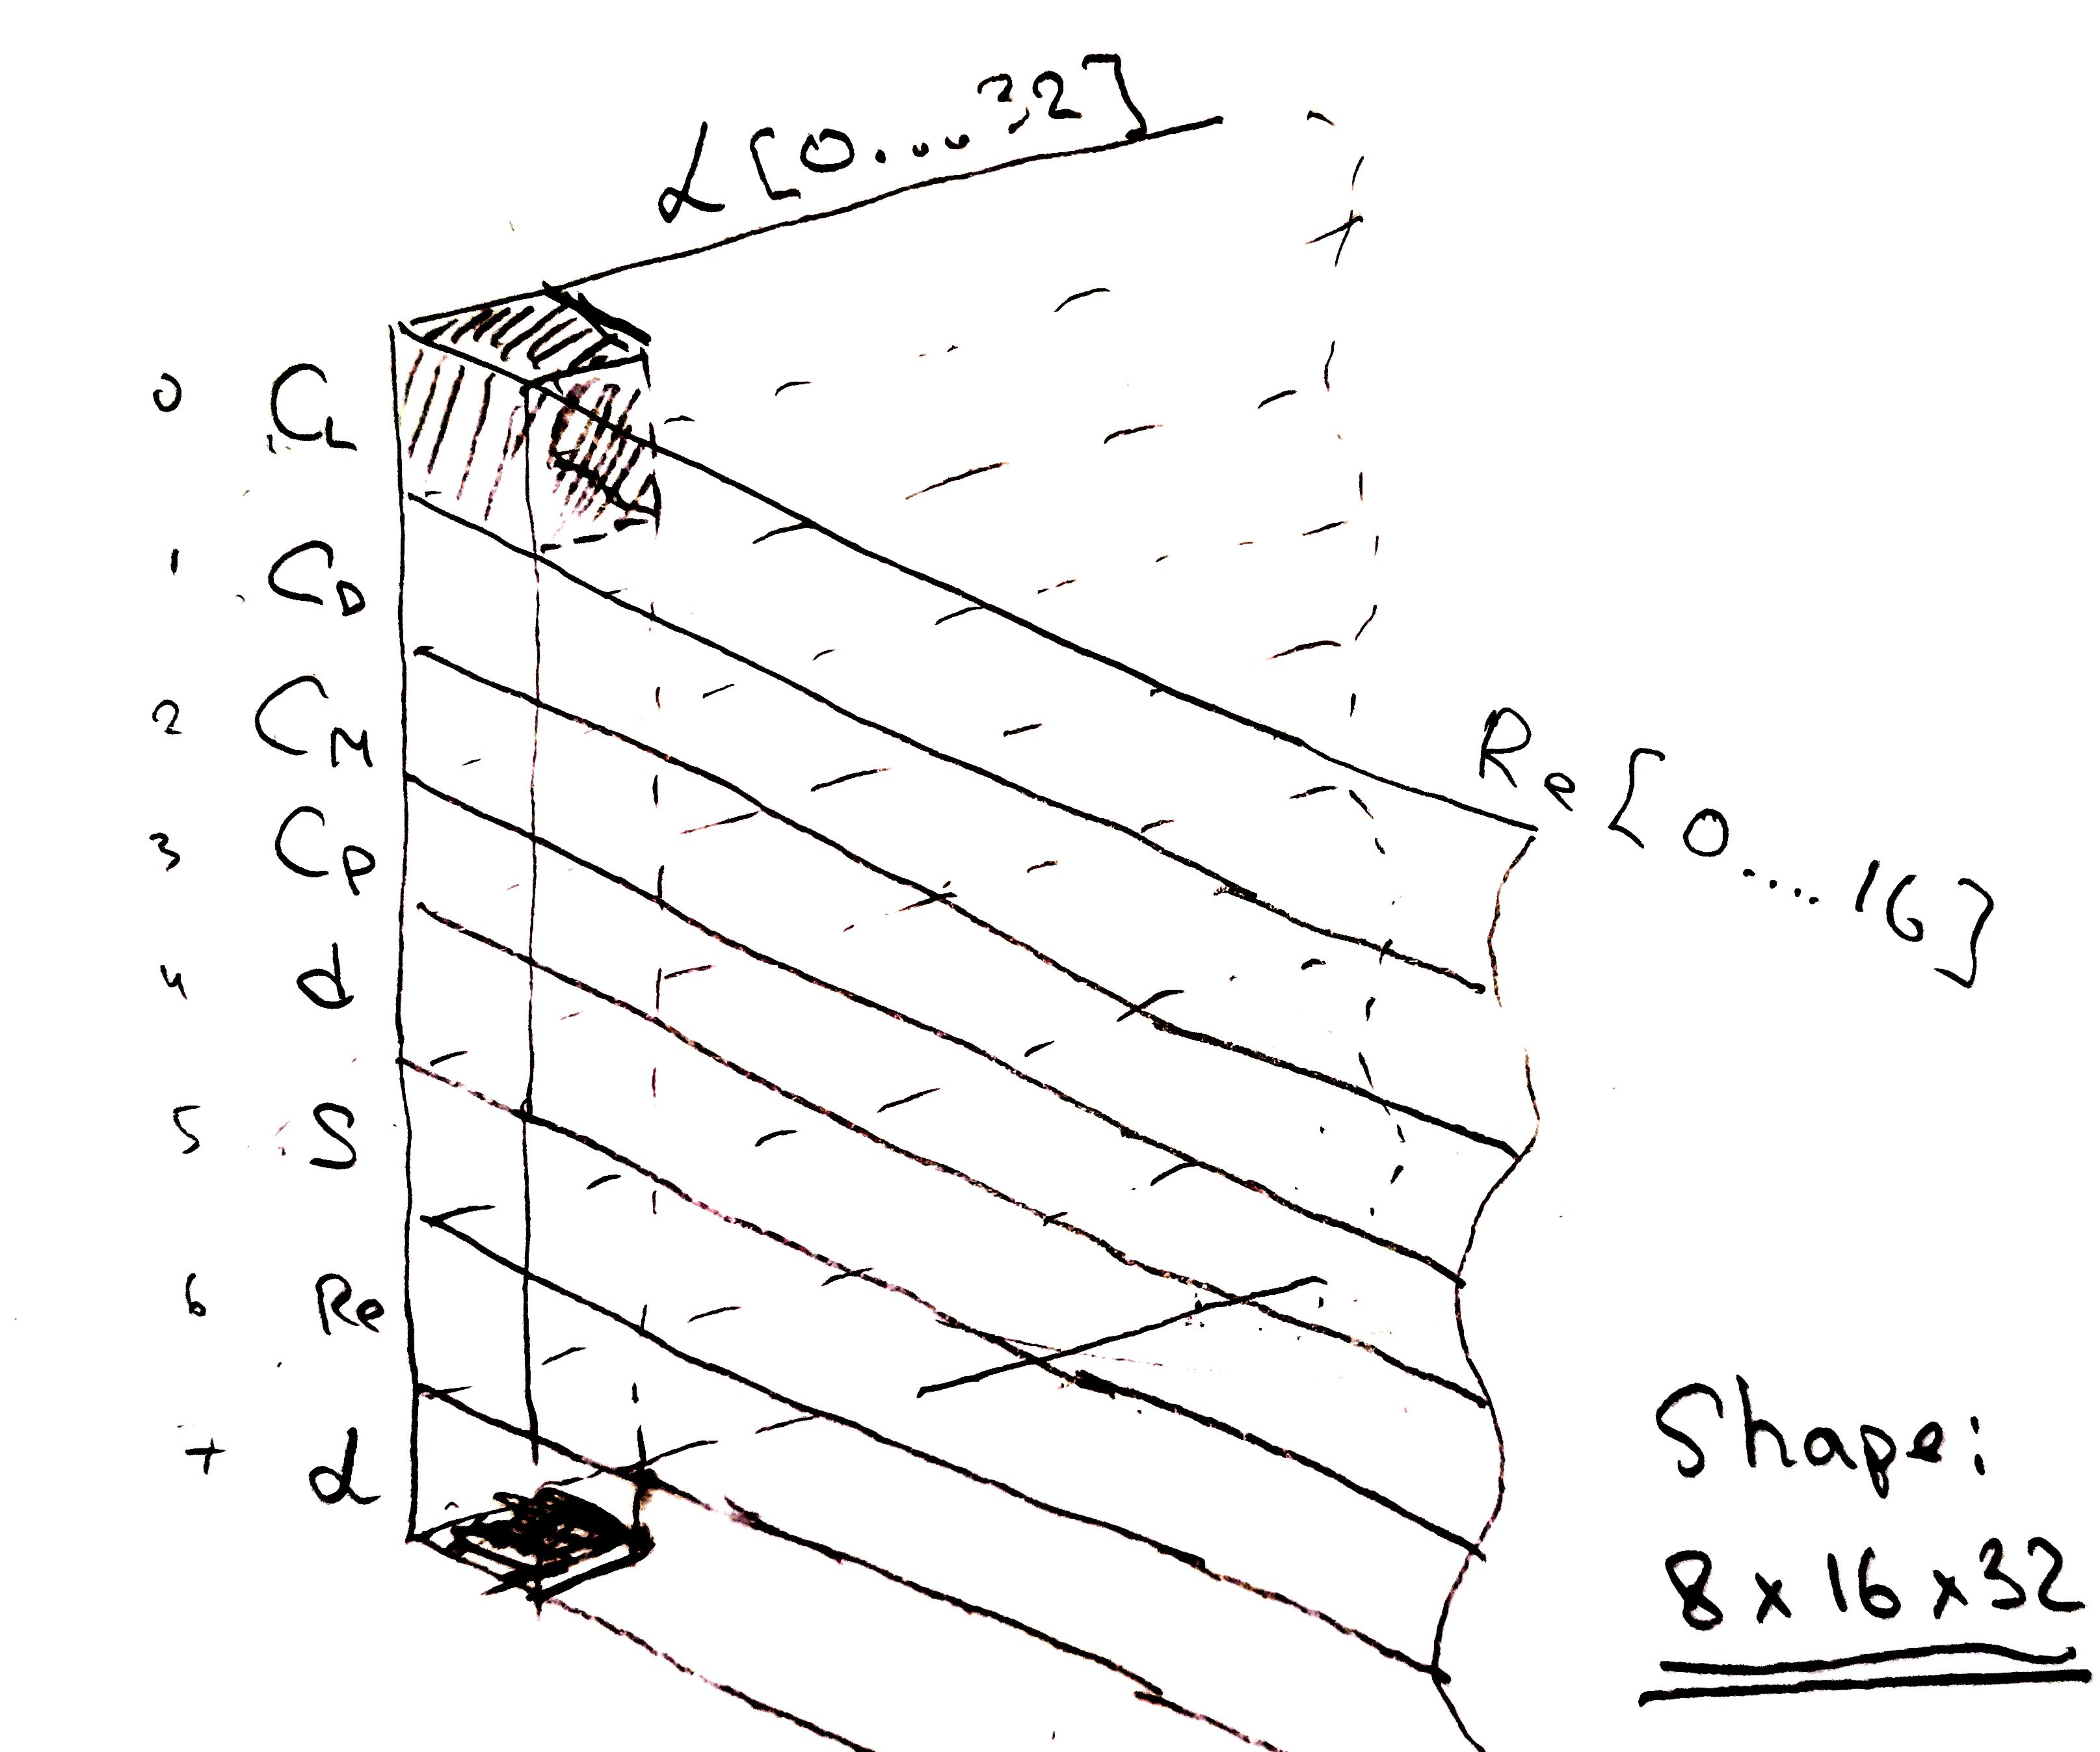 α [0....32]
0 CL
1 CD
2 CM
3 CP
4 d
5 S
6 Re
7 α
Re [0....16]
Shape:
8 x 16 x 32